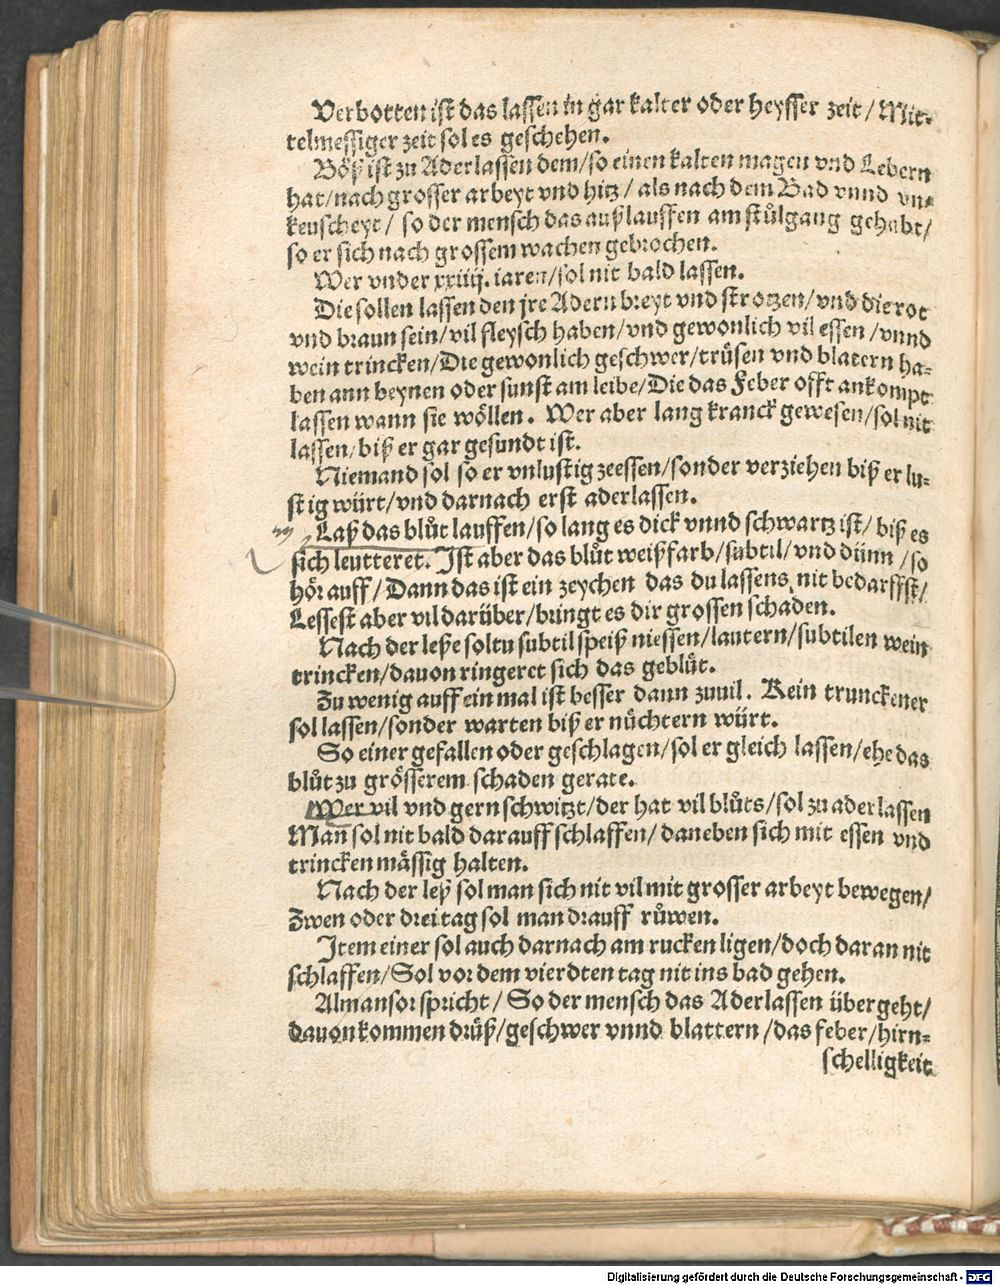 Verbotten ist das lassen in gar kalter oder heysser zeit/ Mit-
telmessiger zeit sol es geschehen.
Böß ist zu Aderlassen dem/ so einen kalten magen vnd Lebern
hat/ nach grosser arbeyt vnd hitz/ als nach dem Bad vnnd vn-
keuscheyt/ so der mensch das außlauffen am stůlgang gehabt/
so er sich nach grossem wachen gebrochen.
Wer vnder xxiiij. iaren/ sol nit bald lassen.
Die sollen lassen den jre Adern breyt vnd strotzen/ vnd die rot
vnd braun sein/ vil fleysch haben/ vnd gewonlich vil essen/ vnnd
wein trincken/ Die gewonlich geschwer/ trüsen vnd blatern ha-
ben ann beynen oder sunst am leibe/ Die das Feber offt ankompt
lassen wann sie wöllen. Wer aber lang kranck gewesen/ sol nit
lassen/ biß er gar gesundt ist.
Niemand sol so er vnlustig zeessen/ sonder verziehen biß er lu-
stig würt/ vnd darnach erst aderlassen.
Laß das blůt lauffen/ so lang es dick vnnd schwartz ist/ biß es
sich leutteret. Ist aber das blůt weißfarb/ subtil/ vnd dünn/ so
hör auff/ Dann das ist ein zeychen das du lassens nit bedarffst/
Lessest aber vil darüber/ bringt es dir grossen schaden.
Nach der leße soltu subtil speiß niessen/ lautern/ subtilen wein
trincken/ dauon ringeret sich das geblüt.
Zu wenig auff ein mal ist besser dann zuuil. Kein trunckener
sol lassen/ sonder warten biß er nüchtern würt.
So einer gefallen oder geschlagen/ sol er gleich lassen/ ehe das
blůt zu grösserem schaden gerate.
Wer vil vnd gern schwitzt/ der hat vil blůts/ sol zu aderlassen
Man̄ sol nit bald darauff schlaffen/ daneben sich mit essen vnd
trincken mässig halten.
Nach der leß sol man sich nit vil mit grosser arbeyt bewegen/
Zwen oder drei tag sol man drauff růwen.
Item einer sol auch darnach am rucken ligen/ doch daran nit
schlaffen/ Sol vor dem vierdten tag nit ins bad gehen.
Almansor spricht/ So der mensch das Aderlassen übergeht/
dauon kommen drüß/ geschwer vnnd blattern/ das feber/ hirn-
schelligkeit
Digitalisierung gefördert durch die Deutsche Forschungsgemeinschaft - DFG